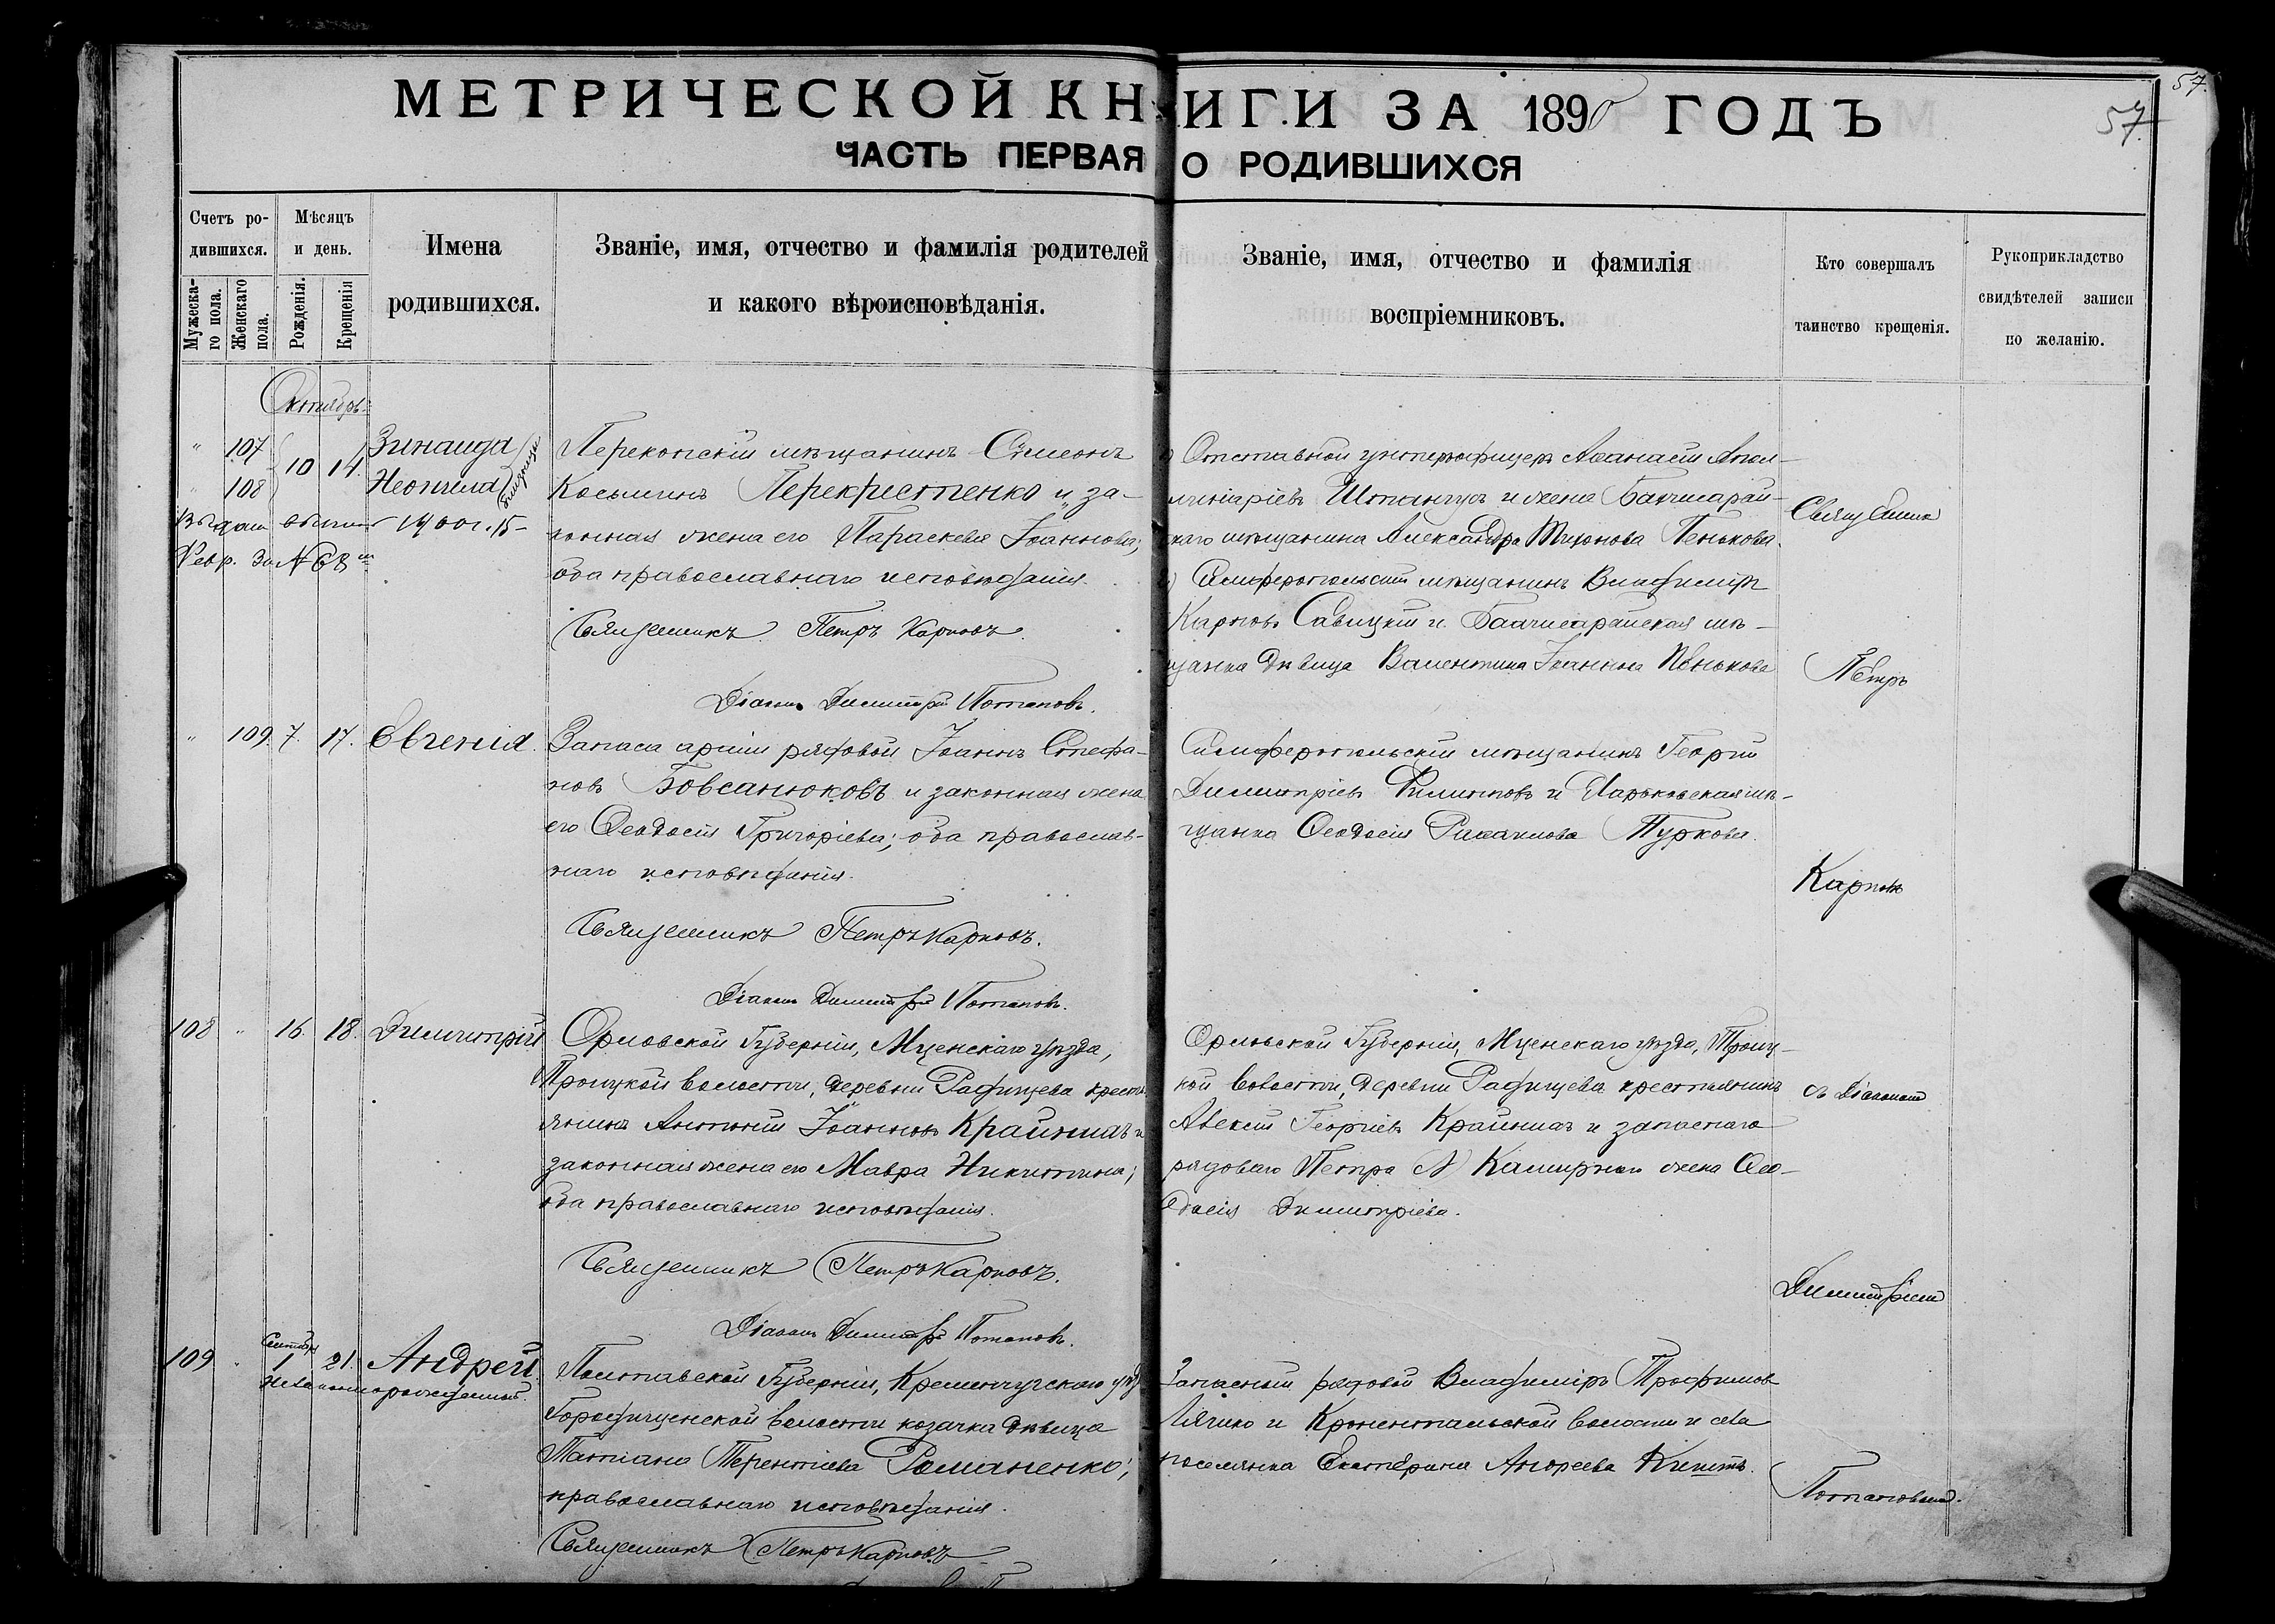 57.
57.
МЕТРИЧЕСКОЙ КНИГИ ЗА 1890 ГОДЪ
ЧАСТЬ ПЕРВАЯ О РОДИВШИХСЯ
Счетъ родившихся.
Мужескаго пола.
Женскаго пола.
Мѣсяцъ и день.
Рожденія.
Крещенія
Имена
родившихся.
Званіе, имя, отчество и фамилія родителей
и какого вѣроисповѣданія.
Званіе, имя, отчество и фамилія
воспріемниковъ.
Кто совершалъ
таинство крещенія.
Рукоприкладство
свидѣтелей записи
по желанію.
Октябрь
" 107 10 14 Зинаида
" 108 Неонила близнецы
1900 г. 15
Февр. за № 68
Перекопскій мѣщанинъ Симеонъ
Косьминъ Перекрестенко и за-
конная жена его Параскева Іоаннова;
оба православнаго исповѣданія.
Священникъ Петръ Карповъ.
Діаконъ Димитрій Потаповъ.
Отставной унтерофицеръ Аѳанасій Апол-
линаріевъ и жена Бахчисарай-
скаго мѣщанина Александра Тихонова Пенькова.
Симферопольскій мѣщанинъ Владиміръ
Карповъ Савицкій и Бахчисарайская мѣ-
щанка дѣвица Валентина Іоаннова Пенькова
" 109. 7. 17. Евгенія.
Запаса арміи рядовой Іоаннъ Стефа-
новъ Бовсанюковъ и законная жена
его Ѳеодосія Григоріева; оба православ-
наго исповѣданія.
Священникъ Петръ Карповъ.
Діаконъ Димитрій Потаповъ.
Симферопольскій мѣщанинъ Георгій
Димитріевъ Филипповъ и Харьковская мѣ-
щанка Ѳеодосія Пуркова.
108 " 16. 18. Димитрій
Орловской Губерніи, Мценскаго уѣзда,
Троицкой волости, деревни Радищева кресть-
янинъ Антоній Іоанновъ Крайнихъ и
законная жена его Мавра Никитина;
оба православнаго исповѣданія.
Священникъ Петръ Карповъ.
Діаконъ Димитрій Потаповъ.
Орловской Губерніи, Мценскаго уѣзда, Троиц-
кой волости, деревни Радищева крестьянинъ
Алексій Георгіевъ Крайнихъ и запаснаго
рядоваго Петра жена Ѳео-
досія Димитріева.
109 " Сентября 1 21. Андрей.
незаконнорожденный.
Полтавской Губерніи, Кременчугскаго уѣз
волости козачка дѣвица
Татіана Терентіева Романенко;
православнаго исповѣданія.
Священникъ Петръ Карповъ
Запасный рядовой Владиміръ Трофимовъ
и Кронентальской волости и села
поселянка Екатерина Андреева
Священникъ
Петръ
Карповъ
съ Діакономъ
Димитріемъ
Потаповымъ.